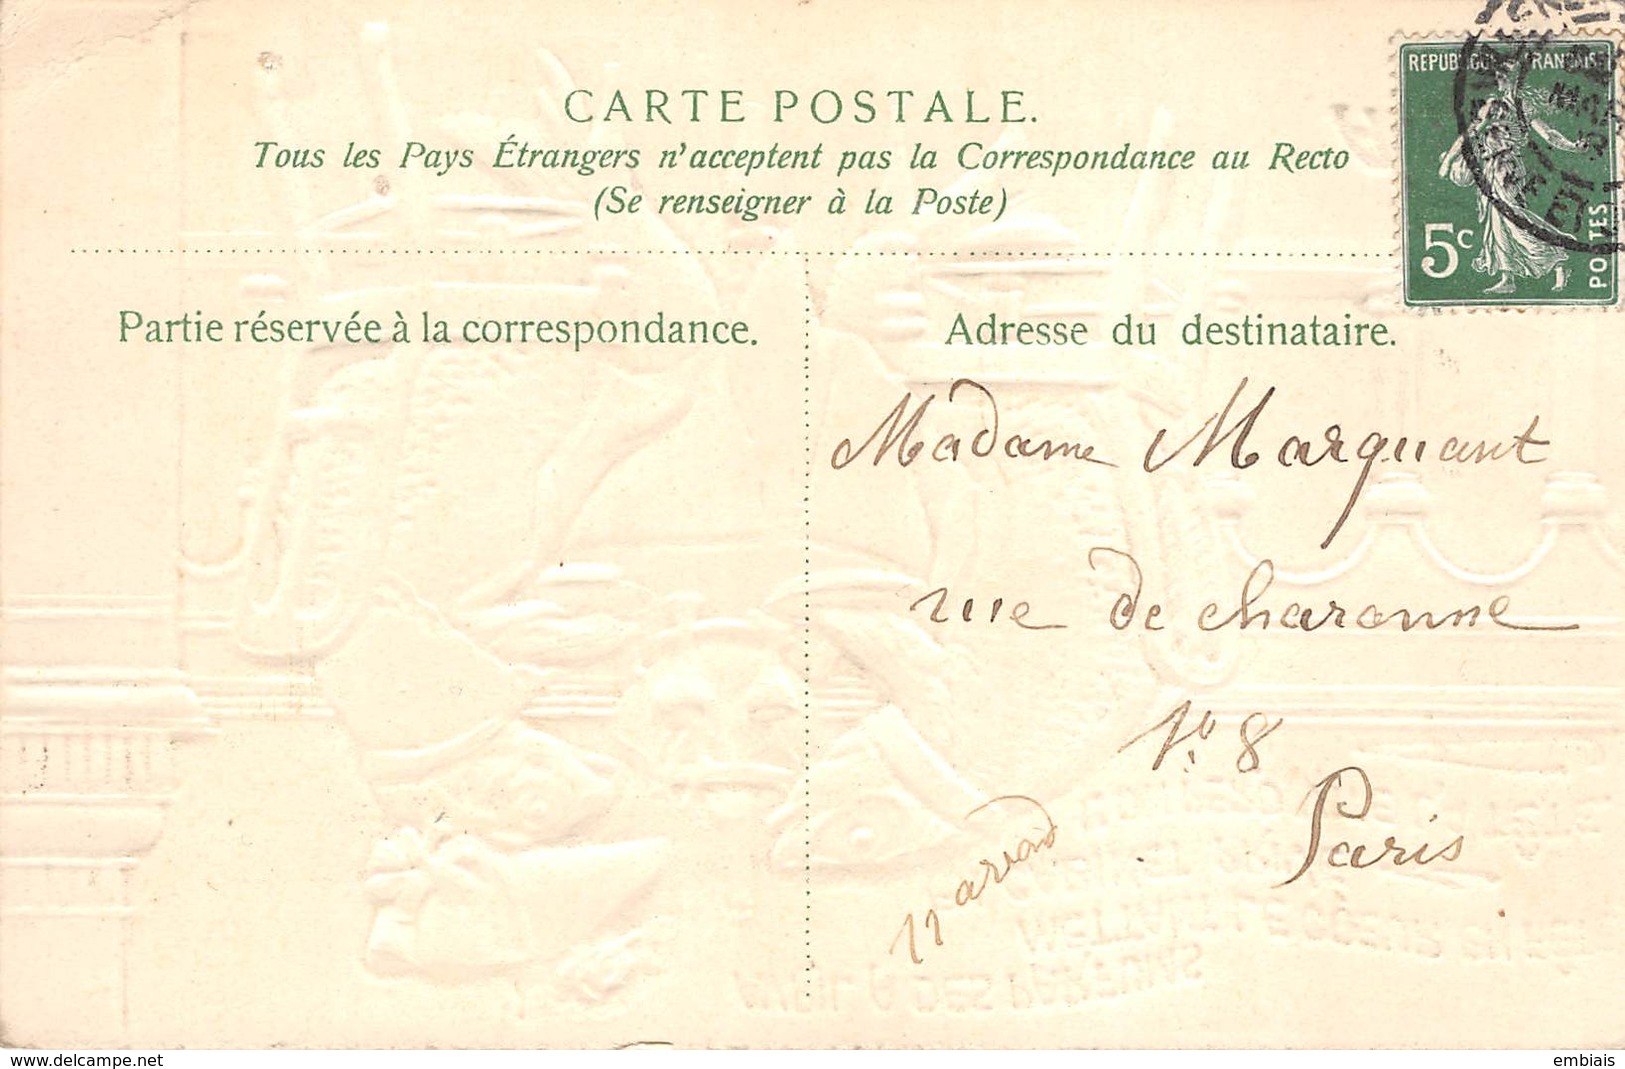 CARTE POSTALE.
Tous les Pays Étrangers n'acceptent pas la Correspondance au Recto
(Se renseigner à la Poste)
REPUBLIQUE FRANÇAISE
5c
POSTES
Partie réservée à la correspondance.
Adresse du destinataire.
Madame Marquant
rue de charonne
No 8
Paris
11 arrond
www.delcampe.net
embiais